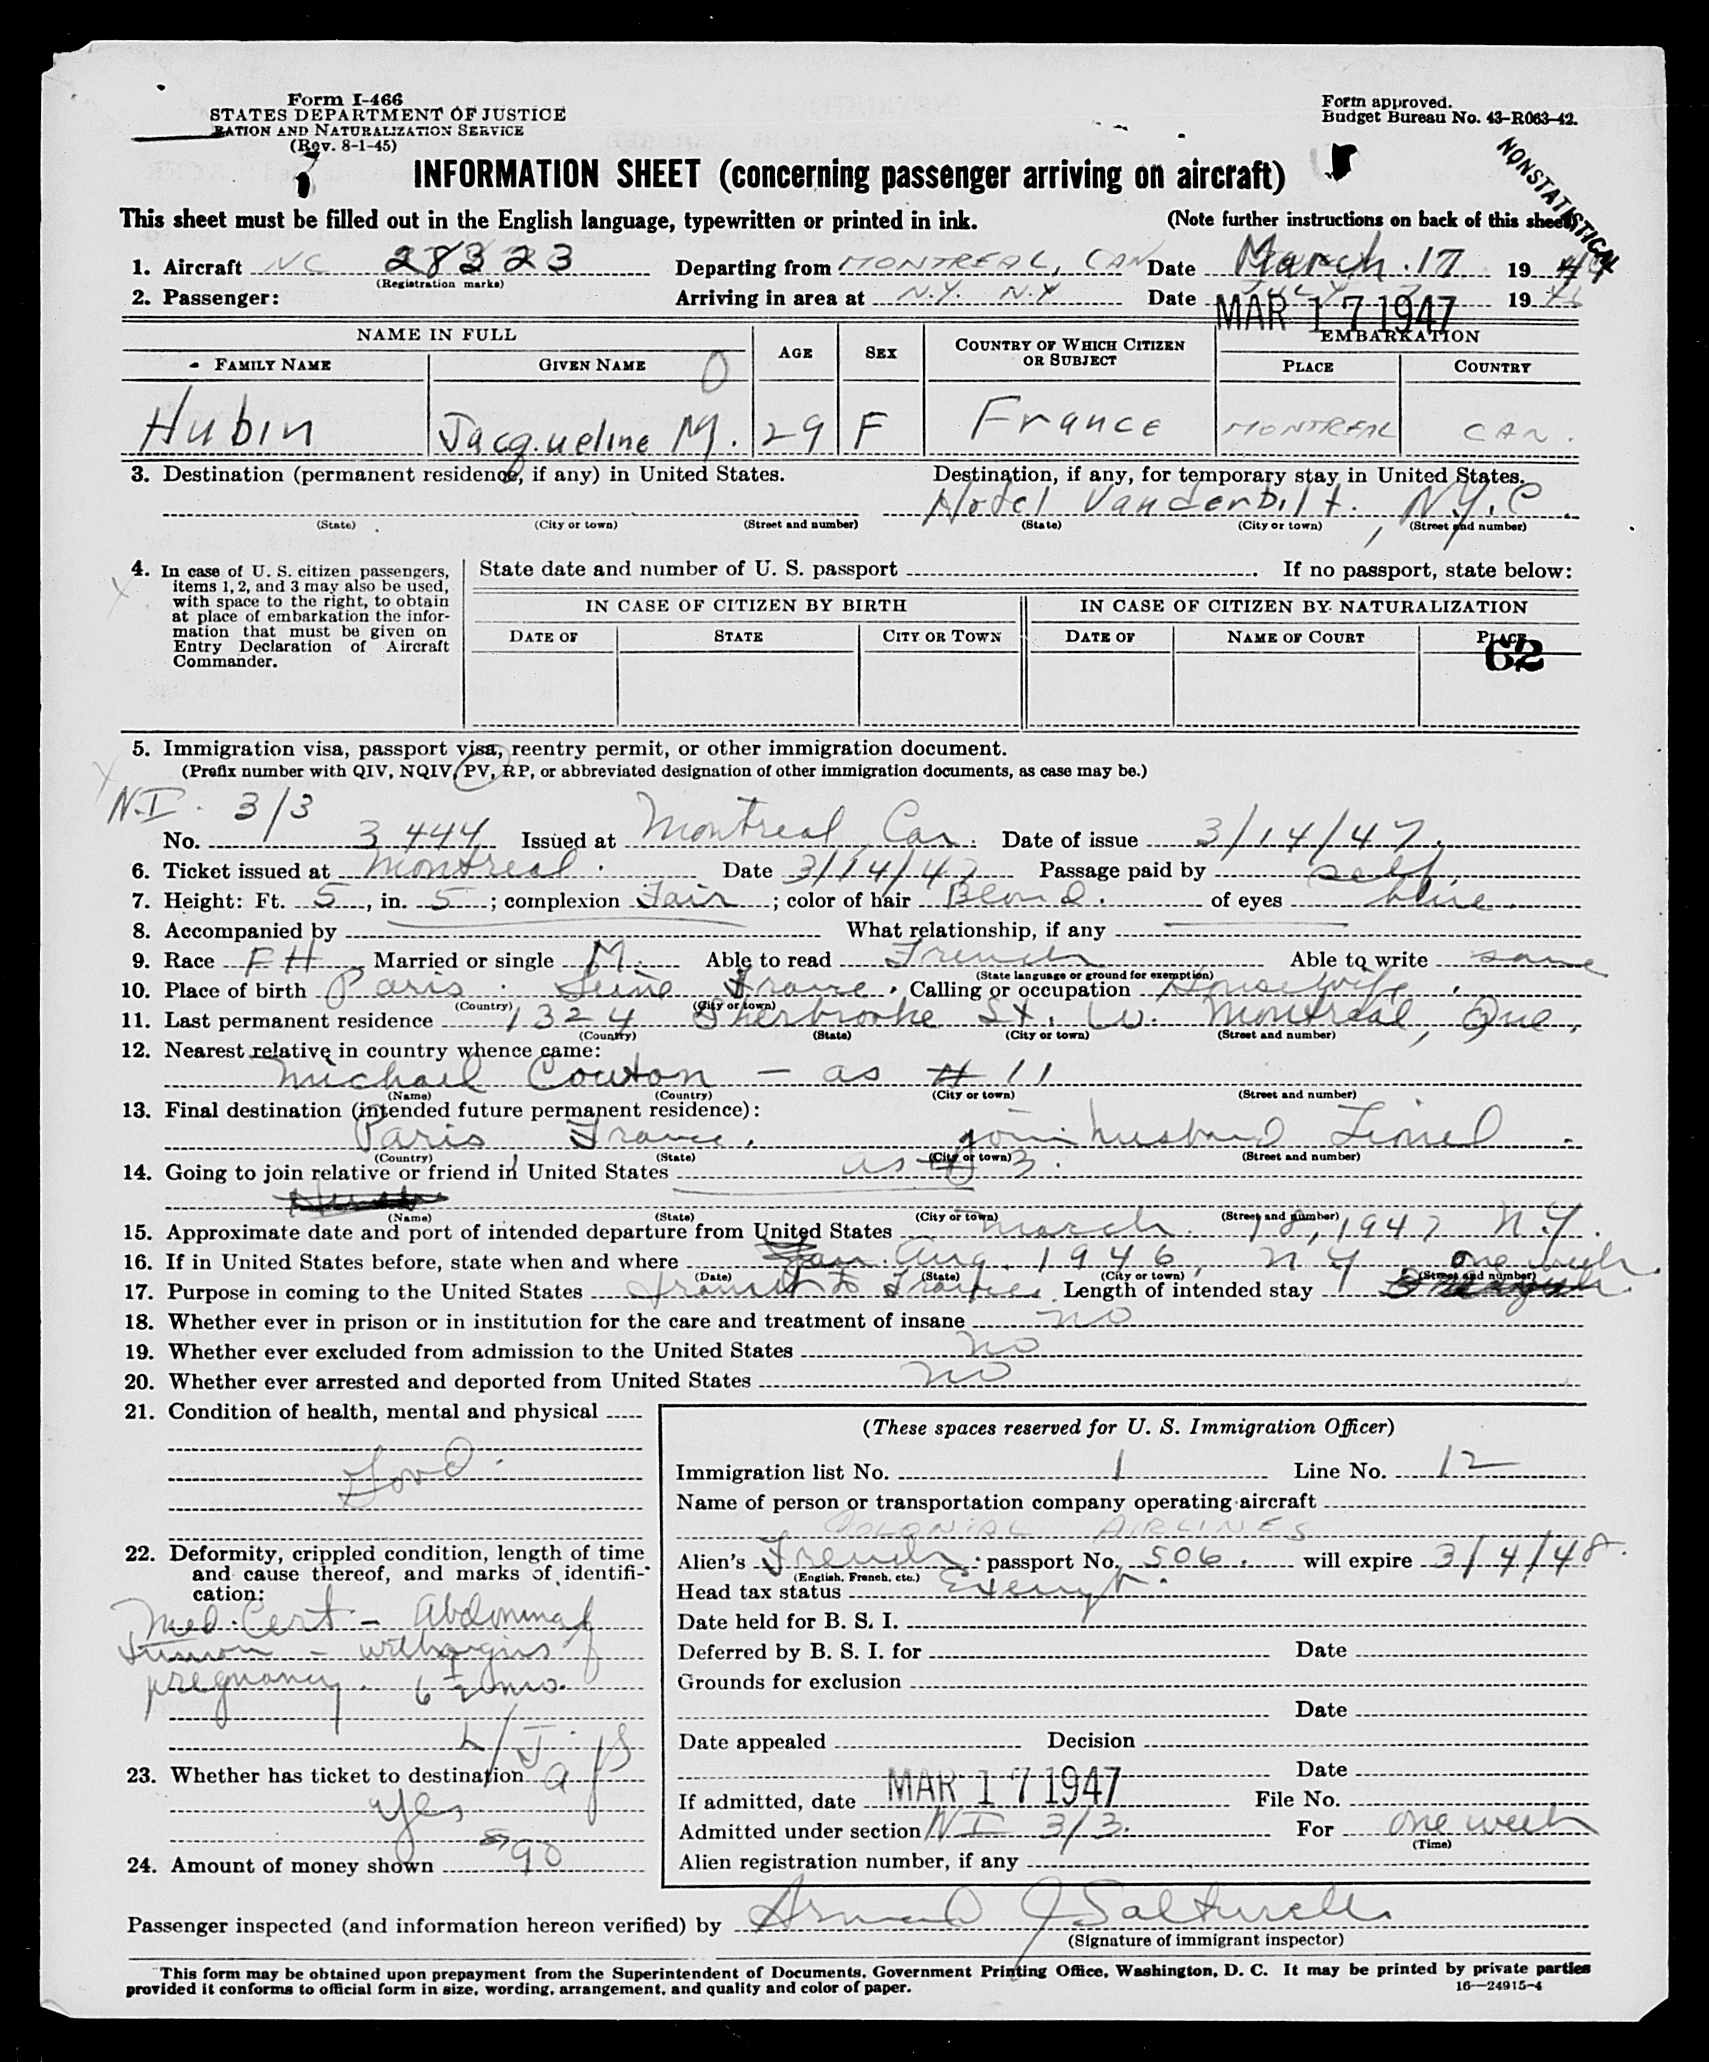 Form I-466
STATES DEPARTMENT OF JUSTICE
RATION AND NATURALIZATION SERVICE
(Rev. 8-1-45)
Form approved.
Budget Bureau No. 43-R063-42.
NONSTATISTICAL
INFORMATION SHEET (concerning passenger arriving on aircraft)
This sheet must be filled out in the English language, typewritten or printed in ink. (Note further instructions on back of this sheet)
1. Aircraft NC 28323 Departing from MONTREAL, CAN Date March 17 19
(Registration marks)
2. Passenger: Arriving in area at N.Y. N.Y Date JULY 19 46
MAR 17 1947
NAME IN FULL AGE SEX COUNTRY OF WHICH CITIZEN OR SUBJECT EMBARKATION
FAMILY NAME GIVEN NAME PLACE COUNTRY
Hubin Jacqueline M. 29 F France MONTREAL CAN.
3. Destination (permanent residence, if any) in United States. Destination, if any, for temporary stay in United States.
Hotel Vanderbilt, N.Y.C.
(State) (City or town) (Street and number) (State) (City or town) (Street and number)
4. In case of U. S. citizen passengers, items 1, 2, and 3 may also be used, with space to the right, to obtain at place of embarkation the information that must be given on Entry Declaration of Aircraft Commander.
State date and number of U. S. passport If no passport, state below:
IN CASE OF CITIZEN BY BIRTH IN CASE OF CITIZEN BY NATURALIZATION
DATE OF STATE CITY OR TOWN DATE OF NAME OF COURT PLACE
62
5. Immigration visa, passport visa, reentry permit, or other immigration document.
(Prefix number with QIV, NQIV, PV, RP, or abbreviated designation of other immigration documents, as case may be.)
N.I. 3/3
No. 3444 Issued at Montreal Can. Date of issue 3/14/47.
6. Ticket issued at Montreal. Date 3/14/47 Passage paid by self.
7. Height: Ft. 5, in. 5; complexion Fair; color of hair Blond. of eyes blue.
8. Accompanied by What relationship, if any
9. Race FH Married or single M. Able to read French Able to write same
(State language or ground for exemption)
10. Place of birth Paris. Seine France. Calling or occupation Housewife.
(Country) (City or town)
11. Last permanent residence 1324 Sherbrooke St. W. Montreal, Que,
(Country) (State) (City or town) (Street and number)
12. Nearest relative in country whence came:
Michael Cowton - as # 11
(Name) (Country) (City or town) (Street and number)
13. Final destination (intended future permanent residence):
Paris France. join husband Lionel
(Country) (State) (City or town) (Street and number)
14. Going to join relative or friend in United States as # 3.
(Name) (State) (City or town) (Street and number)
15. Approximate date and port of intended departure from United States March 18, 1947 N.Y.
16. If in United States before, state when and where Aug. 1946, N Y one week.
(Date) (State) (City or town) (Street and number)
17. Purpose in coming to the United States Transit to France. Length of intended stay
18. Whether ever in prison or in institution for the care and treatment of insane no
19. Whether ever excluded from admission to the United States no
20. Whether ever arrested and deported from United States no
21. Condition of health, mental and physical
Good.
22. Deformity, crippled condition, length of time and cause thereof, and marks of identification:
Med. Cert - Abdominal
pregnancy. 6 1/2 mo.
23. Whether has ticket to destination
yes
24. Amount of money shown $90
(These spaces reserved for U. S. Immigration Officer)
Immigration list No. 1 Line No. 12
Name of person or transportation company operating aircraft
COLONIAL AIRLINES
Alien's French passport No. 506. will expire 3/4/48.
(English, French, etc.)
Head tax status Exempt.
Date held for B. S. I.
Deferred by B. S. I. for Date
Grounds for exclusion
Date
Date appealed Decision
Date
If admitted, date MAR 17 1947 File No.
Admitted under section NI 3/3. For one week
(Time)
Alien registration number, if any
Passenger inspected (and information hereon verified) by
(Signature of immigrant inspector)
This form may be obtained upon prepayment from the Superintendent of Documents, Government Printing Office, Washington, D. C. It may be printed by private parties
provided it conforms to official form in size, wording, arrangement, and quality and color of paper.
16—24915-4